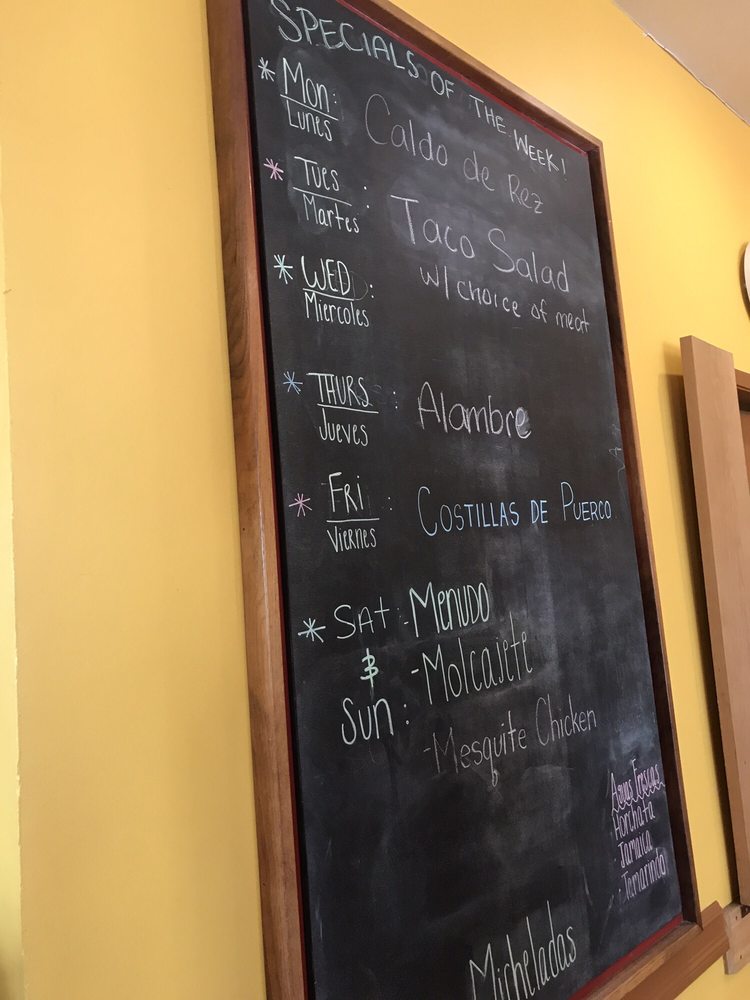 SPECIALS OF THE WEEK!
* Mon: Caldo de Rez
Lunes
* Tues: Taco Salad
Martes w/ choice of meat
* WED:
Miercoles
* THURS: Alambre
Jueves
* FRI: COSTILLAS DE PUERCO
Viernes
* SAt: -MENUDO
& -Molcajete
Sun: -Mesquite Chicken
Aguas Frescas
Horchata
Jamaica
Tamarindo
Micheladas